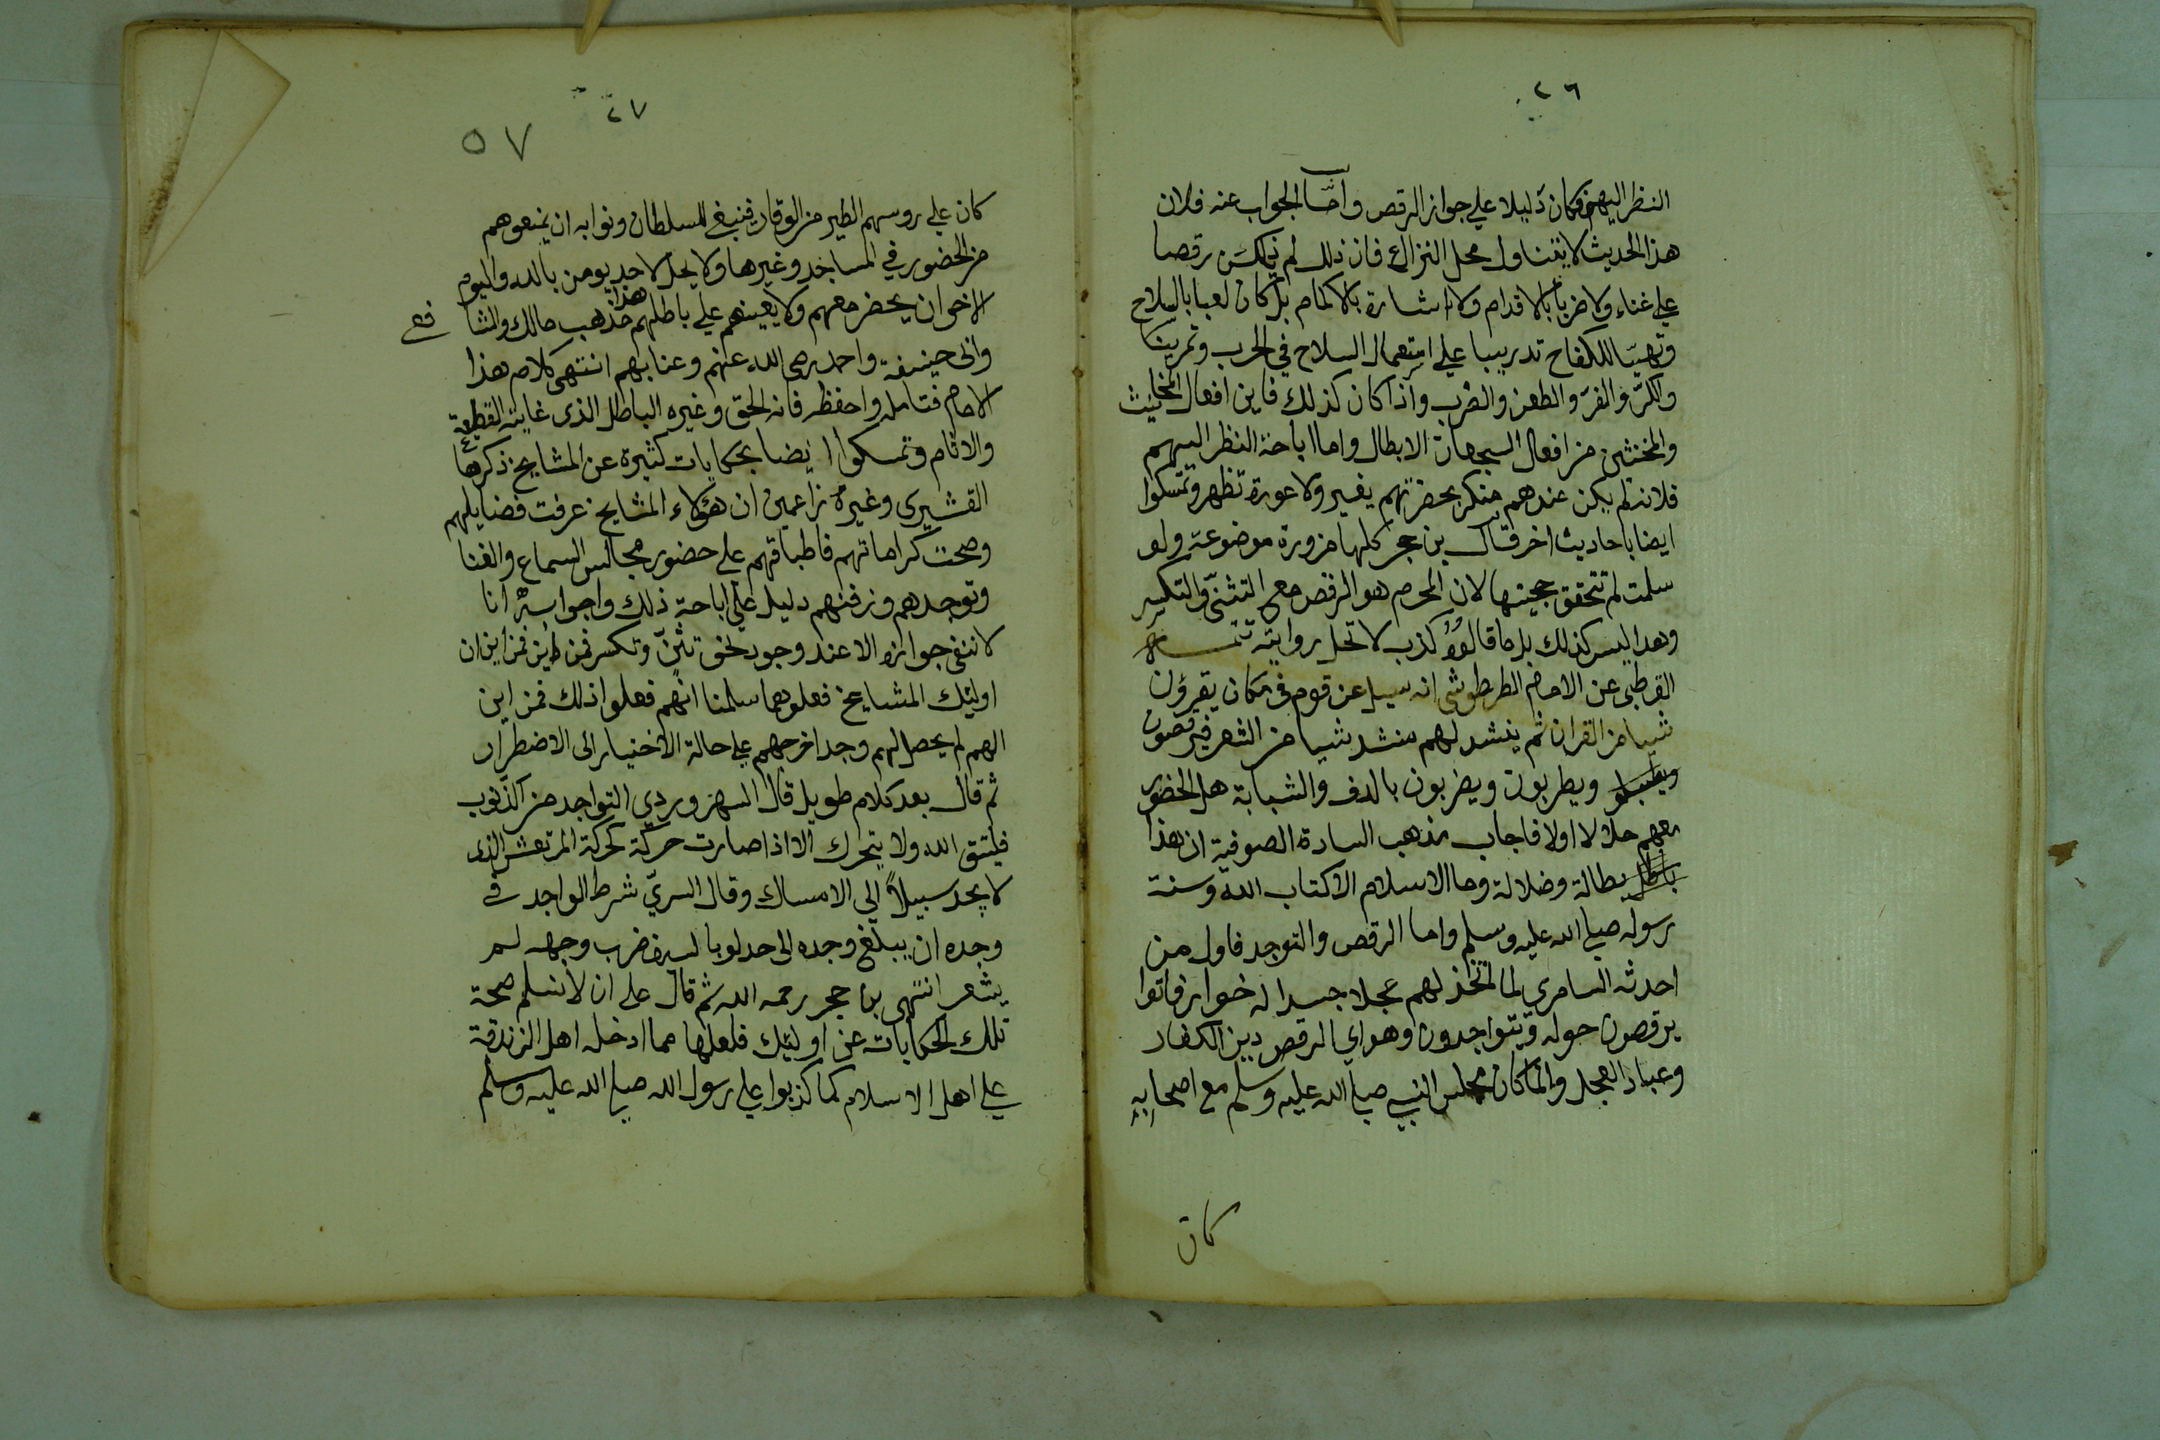 ٢٦
النظر اليهم فكان دليلا علي جواز الرقص واما الجواب عنه فلان
هذا الحديث لا يتناول محل النزاع فان ذلك لم يكن رقصا
علي غناء ولا ضربا بالاقدام ولا اشارة بالاكمام بل كان لعبا بالسلاح
وتهيّا للكفاح تدريبا علي استعمال السلاح في الحرب وتمرينا
والكرّ والفرّ والطعن والضرب واذا كان كذلك فاين افعال المخانيث
والمخنثين من افعال الشجعان الابطال واما اباحة النظر اليهم
فلانه لم يكن عندهم منكر بحضرتهم يغير ولا عورة تظهر وتمسكوا
ايضا باحاديث اخر قال بن حجر كلها مزورة موضوعة ولو
سلمت لم تتحقق حجيتها لان المحرم هو الرقص مع التثنّي والتكسر
وهذا ليس كذلك بل ما قالوه كذب لا تحل روايته
القرطبي عن الامام الطرطوشي انه سيل عن قوم في مكان يقرؤن
شيا من القران ثم ينشد لهم منشد شيا من الشعر فيرقصون
ويطربون ويضربون بالدف والشبابة هل الحضور
معهم حلال اولا فاجاب مذهب السادة الصوفية ان هذا
باطل بطالة وضلالة وما الاسلام الا كتاب الله وسنة
رسوله صلي الله عليه وسلم واما الرقص والتوجد فاول من
احدثه السامري لما اتخذ لهم عجلا جسدا له خوار فاتوا
يرقصون حوله ويتواجدون وهو اي الرقص دين الكفار
وعباد العجل وانما كان مجلس النبي صلي الله عليه وسلم مع اصحابه
كان
٢٧
٥٧
كان علي روسهم الطير من الوقار فينبغي للسلطان ونوابه ان يمنعوهم
من الحضور في المساجد وغيرها ولا يحل لاحد يومن بالله واليوم
الاخر ان يحضر معهم ولا يعينهم علي باطلهم هذا مذهب مالك والشافعي
وابي حنيفة واحمد رضي الله عنهم وعنا بهم انتهي كلام هذا
الامام فتامله واحفظه فانه الحق وغيره الباطل الذي غايته القطيعة
والاثام وتمسكوا ايضا بحكايات كثيرة عن المشايخ ذكرها
القشيري وغيره زاعمين ان هؤلاء المشايخ عرفت فضايلهم
وصحت كراماتهم فاطباقهم علي حضور مجالس السماع والغنا
وتوجدهم وزفنهم دليل علي اباحة ذلك واجوابه انا
لا ننفي جوازه الا عند وجود نحو تثنّ وتكسر فمن اين فمن اين ان
اوليك المشايخ فعلوهما سلمنا انهم فعلوا ذلك فمن اين
انهم لم يحصل لهم وجد اخرجهم علي حالة الاختيار الي الاضطرار
ثم قال بعد كلام طويل قال السهروردي التواجد من الذنوب
فليتق الله ولا يتحرك الا اذا صارت حركته كحركة المرتعش الذي
لا يجد سبيلا الي الامساك وقال السريّ شرط الواجد في
وجده ان يبلغ وجده الي حد لو بالسيف ضرب وجهه لم
يشعر انتهي بن حجر رحمه الله ثم قال علي ان لا نسلم صحة
تلك الحكايات عن اوليك فلعلها مما ادخله اهل الزندقة
علي اهل الاسلام كما كذبوا علي رسول الله صلي الله عليه وسلم